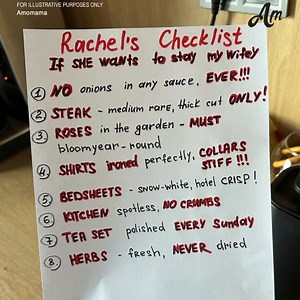 FOR ILLUSTRATIVE PURPOSES ONLY
Amomama
Am
Rachel's Checklist
If SHE wants to stay my wifey
1 NO onions in any sauce, EVER!!!
2 STEAK - medium rare, thick cut ONLY!
3 ROSES in the garden - MUST
bloomyear-round
4 SHIRTS ironed perfectly, COLLARS
STIFF !!!
5 BEDSHEETS - snow-white, hotel CRISP!
6 KITCHEN spotless, NO CRUMBS
7 TEA SET polished EVERY Sunday
8 HERBS - fresh, NEVER dried